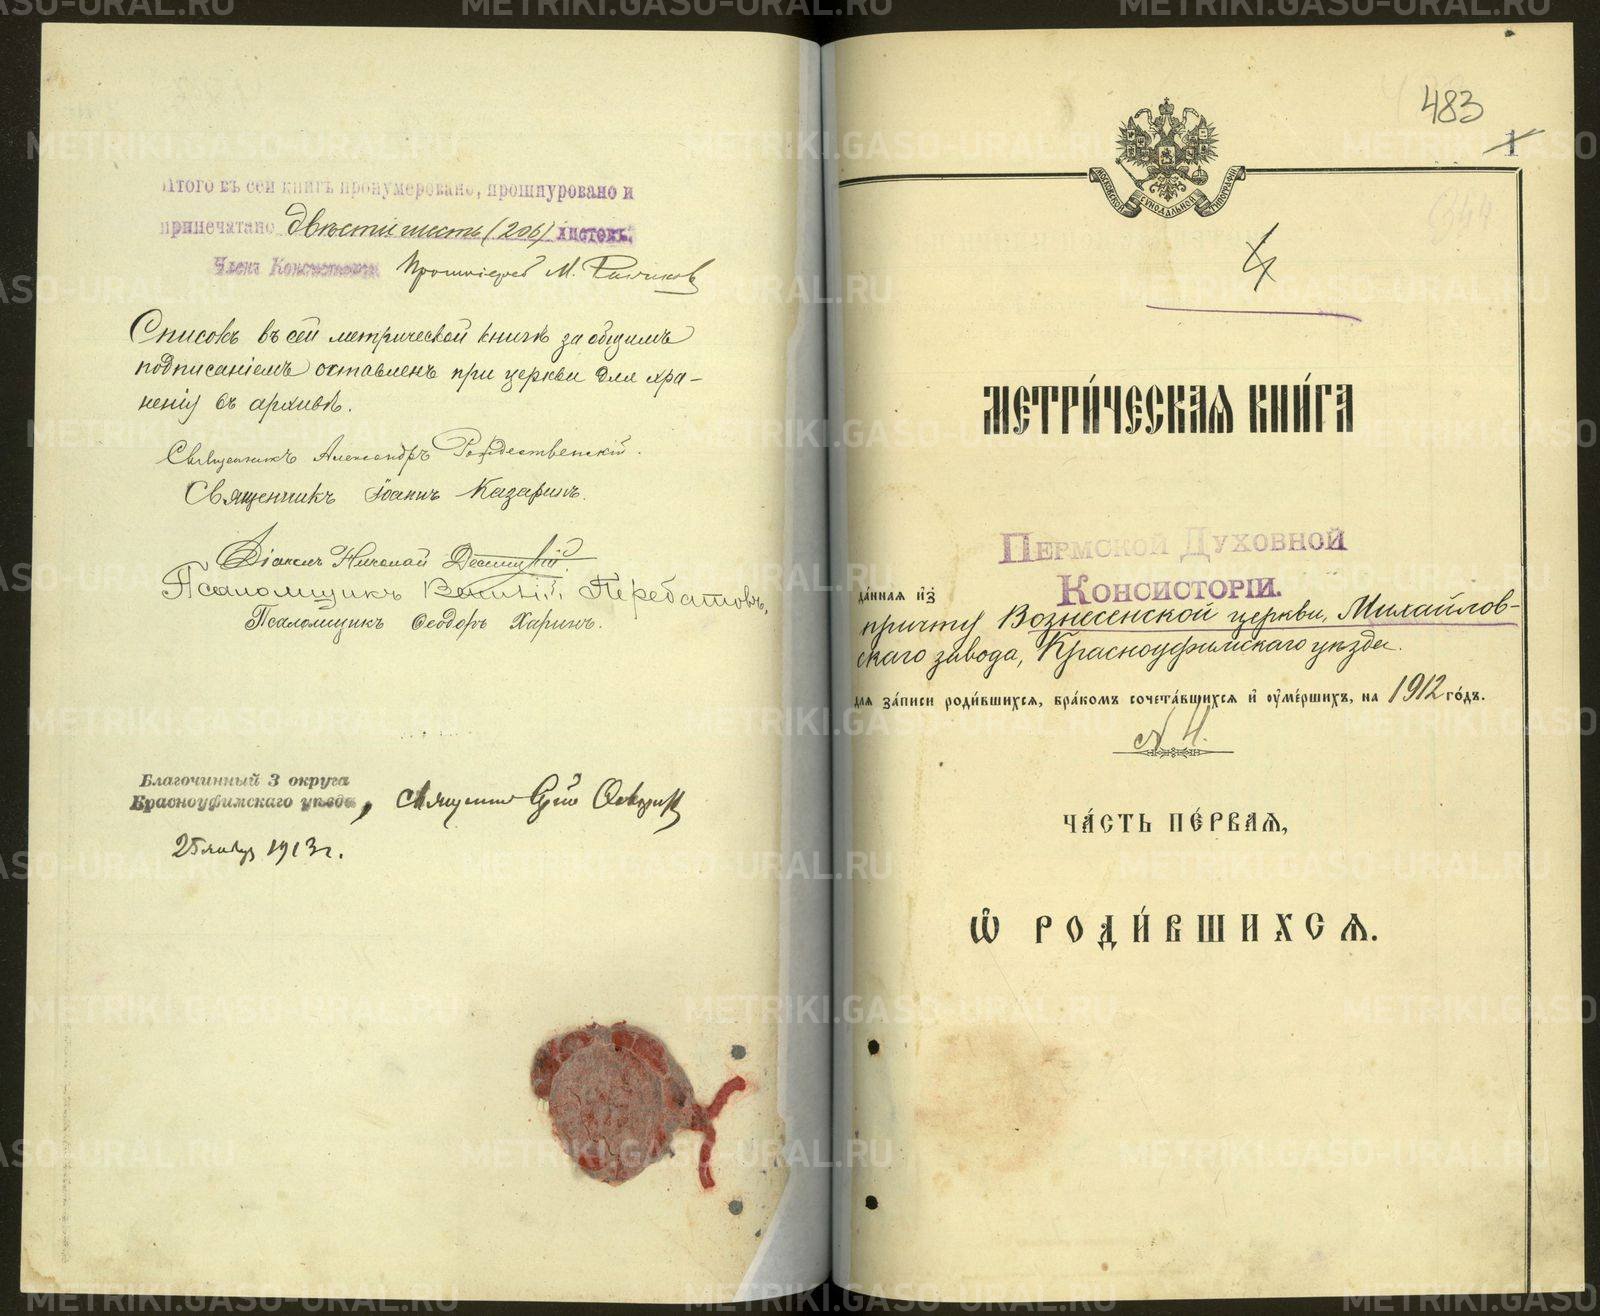 Итого въ сей книгѣ пронумеровано, прошнуровано и
припечатано двѣсти шесть (206) листовъ.
Членъ Консисторіи Протоіерей М.
Списокъ въ сей метрической книгѣ за общимъ
подписаніемъ оставленъ при церкви для хра-
ненія въ архивѣ.
Священникъ Александръ Рождественскій.
Священникъ Іоаннъ Казаринъ.
Діаконъ Николай
Псаломщикъ
Псаломщикъ Ѳеодоръ Харинъ.
Благочинный 3 округа
Красноуфимскаго уѣзда, священникъ
25 1913 г.
483
1
МОСКОВСКОЙ СѴНОДАЛЬНОЙ ТИПОГРАФІИ
4
МЕТРИ́ЧЕСКАѦ КНИ́ГА
ПЕРМСКОЙ ДУХОВНОЙ
КОНСИСТОРІИ.
да́нная и҆з̾
причту Вознесенской церкви, Михайлов-
скаго завода, Красноуфимскаго уѣзда.
для за́писи роди́вшихсѧ, бра́комъ сочета́вшихсѧ и҆ ᲂу҆ме́ршихъ, на 1912 го́дъ.
№ 4.
ЧА́СТЬ ПЕ́РВАѦ,
Ѽ РОДИ́ВШИХСѦ.
METRIKI.GASO-URAL.RU